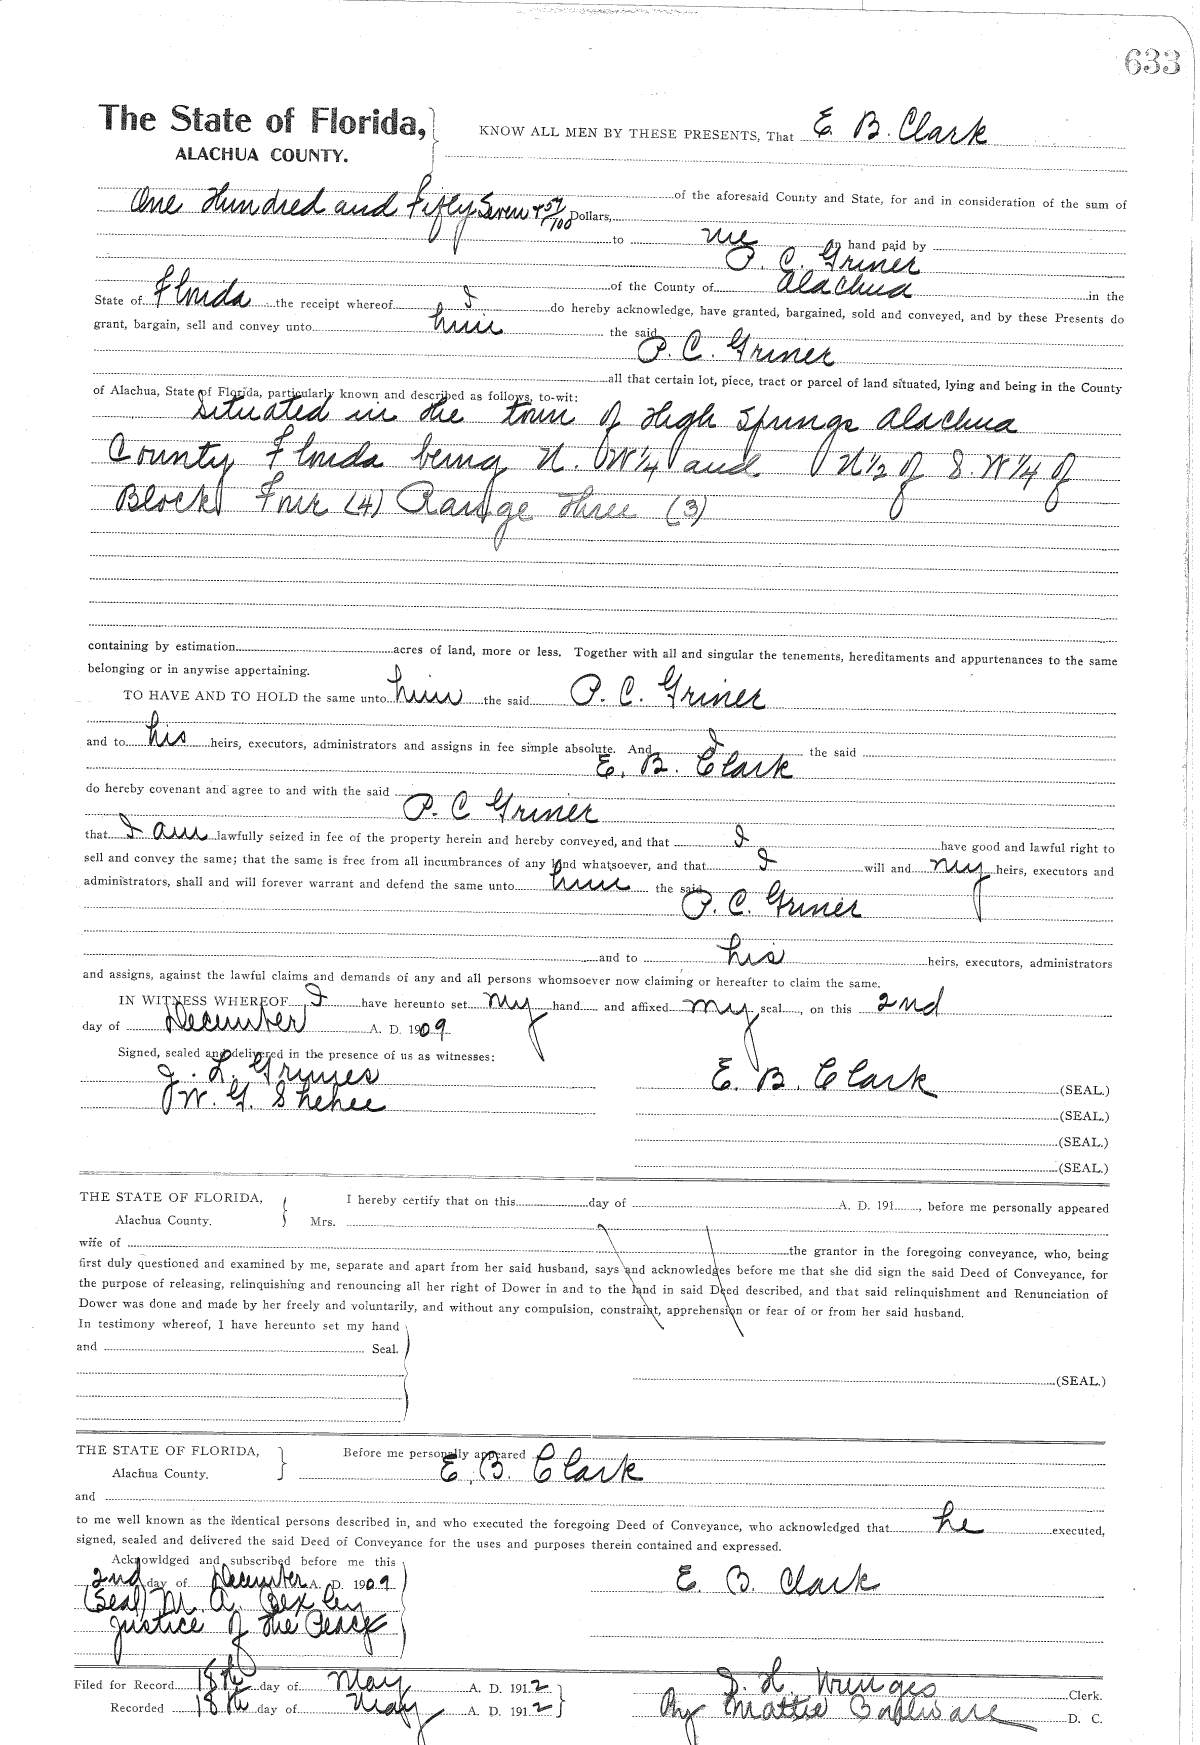 633
The State of Florida, KNOW ALL MEN BY THESE PRESENTS, That E. B. Clark
ALACHUA COUNTY.
of the aforesaid County and State, for and in consideration of the sum of
One Hundred and Fifty Seven + 57/100 Dollars,
to me in hand paid by
P. C. Griner
of the County of Alachua in the
State of Florida the receipt whereof I do hereby acknowledge, have granted, bargained, sold and conveyed, and by these Presents do
grant, bargain, sell and convey unto him the said
P. C. Griner
all that certain lot, piece, tract or parcel of land situated, lying and being in the County
of Alachua, State of Florida, particularly known and described as follows, to-wit:
Situated in the town of High Springs Alachua
County Florida being N. W 1/4 and N 1/2 of S. W 1/4 of
Block Four (4) Range Three (3)
containing by estimation acres of land, more or less. Together with all and singular the tenements, hereditaments and appurtenances to the same
belonging or in anywise appertaining.
TO HAVE AND TO HOLD the same unto him the said P. C. Griner
and to his heirs, executors, administrators and assigns in fee simple absolute. And I the said
E. B. Clark
do hereby covenant and agree to and with the said
P. C Griner
that I am lawfully seized in fee of the property herein and hereby conveyed, and that I have good and lawful right to
sell and convey the same; that the same is free from all incumbrances of any kind whatsoever, and that I will and my heirs, executors and
administrators, shall and will forever warrant and defend the same unto him the said
P. C. Griner
and to his heirs, executors, administrators
and assigns, against the lawful claims and demands of any and all persons whomsoever now claiming or hereafter to claim the same.
IN WITNESS WHEREOF I have hereunto set my hand and affixed my seal, on this 2nd
day of December A. D. 1909
Signed, sealed and delivered in the presence of us as witnesses:
J. L. Grimes E. B. Clark (SEAL.)
W. G. Shehee (SEAL.)
(SEAL.)
(SEAL.)
THE STATE OF FLORIDA, I hereby certify that on this day of A. D. 191 , before me personally appeared
Alachua County. Mrs.
wife of the grantor in the foregoing conveyance, who, being
first duly questioned and examined by me, separate and apart from her said husband, says and acknowledges before me that she did sign the said Deed of Conveyance, for
the purpose of releasing, relinquishing and renouncing all her right of Dower in and to the land in said Deed described, and that said relinquishment and Renunciation of
Dower was done and made by her freely and voluntarily, and without any compulsion, constraint, apprehension or fear of or from her said husband.
In testimony whereof, I have hereunto set my hand
and Seal.
(SEAL.)
THE STATE OF FLORIDA, Before me personally appeared
Alachua County. E. B. Clark
and
to me well known as the identical persons described in, and who executed the foregoing Deed of Conveyance, who acknowledged that he executed,
signed, sealed and delivered the said Deed of Conveyance for the uses and purposes therein contained and expressed.
Acknowldged and subscribed before me this
2nd day of December A. D. 1909 E. B. Clark
(Seal) M. A.
Justice of the Peace
Filed for Record 18th day of May A. D. 1912 S. H. Wienges Clerk.
Recorded 18th day of May A. D. 1912 By Mattie D. C.